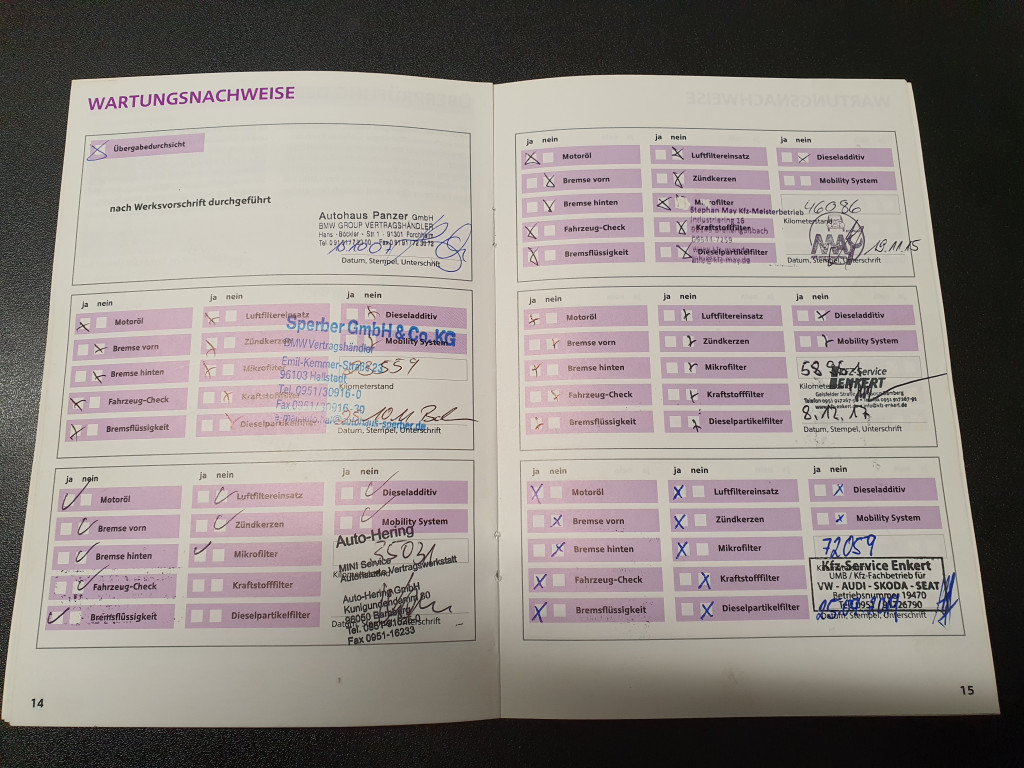 WARTUNGSNACHWEISE
Übergabedurchsicht
nach Werksvorschrift durchgeführt
Autohaus Panzer GmbH
BMW GROUP VERTRAGSHÄNDLER
Hans - Böckler - Str. 1 - 91301 Forchheim
Datum, Stempel, Unterschrift
ja nein ja nein ja nein
Motoröl Luftfiltereinsatz Dieseladditiv
Bremse vorn Zündkerzen Mobility System
Bremse hinten Mikrofilter
Fahrzeug-Check Kraftstofffilter
Bremsflüssigkeit Dieselpartikelfilter
Kilometerstand
Datum, Stempel, Unterschrift
Sperber GmbH & Co. KG
BMW Vertragshändler
Emil-Kemmer-Straße 23
96103 Hallstadt
Tel. 0951/30916-0
Fax 0951/30916-30
ja nein ja nein ja nein
Motoröl Luftfiltereinsatz Dieseladditiv
Bremse vorn Zündkerzen Mobility System
Bremse hinten Mikrofilter
Fahrzeug-Check Kraftstofffilter
Bremsflüssigkeit Dieselpartikelfilter
Auto-Hering
MINI Service
Autorisierte Vertragswerkstatt
Auto-Hering GmbH
Kunigundendamm 80
96050 Bamberg
Fax 0951-16233
14
ja nein ja nein ja nein
Motoröl Luftfiltereinsatz Dieseladditiv
Bremse vorn Zündkerzen Mobility System
Bremse hinten Mikrofilter 46086
Fahrzeug-Check Kraftstofffilter Kilometerstand
Bremsflüssigkeit Dieselpartikelfilter
Stephan May Kfz-Meisterbetrieb
Industriering 16
MAY
19.11.15
Datum, Stempel, Unterschrift
ja nein ja nein ja nein
Motoröl Luftfiltereinsatz Dieseladditiv
Bremse vorn Zündkerzen Mobility System
Bremse hinten Mikrofilter
Fahrzeug-Check Kraftstofffilter
Bremsflüssigkeit Dieselpartikelfilter
KFZ-Service
ENKERT
8.12.17
Datum, Stempel, Unterschrift
ja nein ja nein ja nein
Motoröl Luftfiltereinsatz Dieseladditiv
Bremse vorn Zündkerzen Mobility System
Bremse hinten Mikrofilter 72059
Fahrzeug-Check Kraftstofffilter
Bremsflüssigkeit Dieselpartikelfilter
Kfz-Service Enkert
UMB / Kfz-Fachbetrieb für
VW - AUDI - SKODA - SEAT
Betriebsnummer 19470
Datum, Stempel, Unterschrift
15